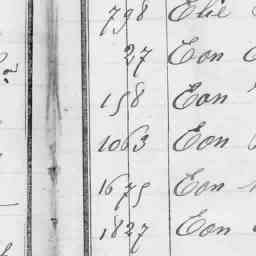 798 Elie
27 Eon
158 Eon
1063 Eon
1675 Eon
1827 Eon